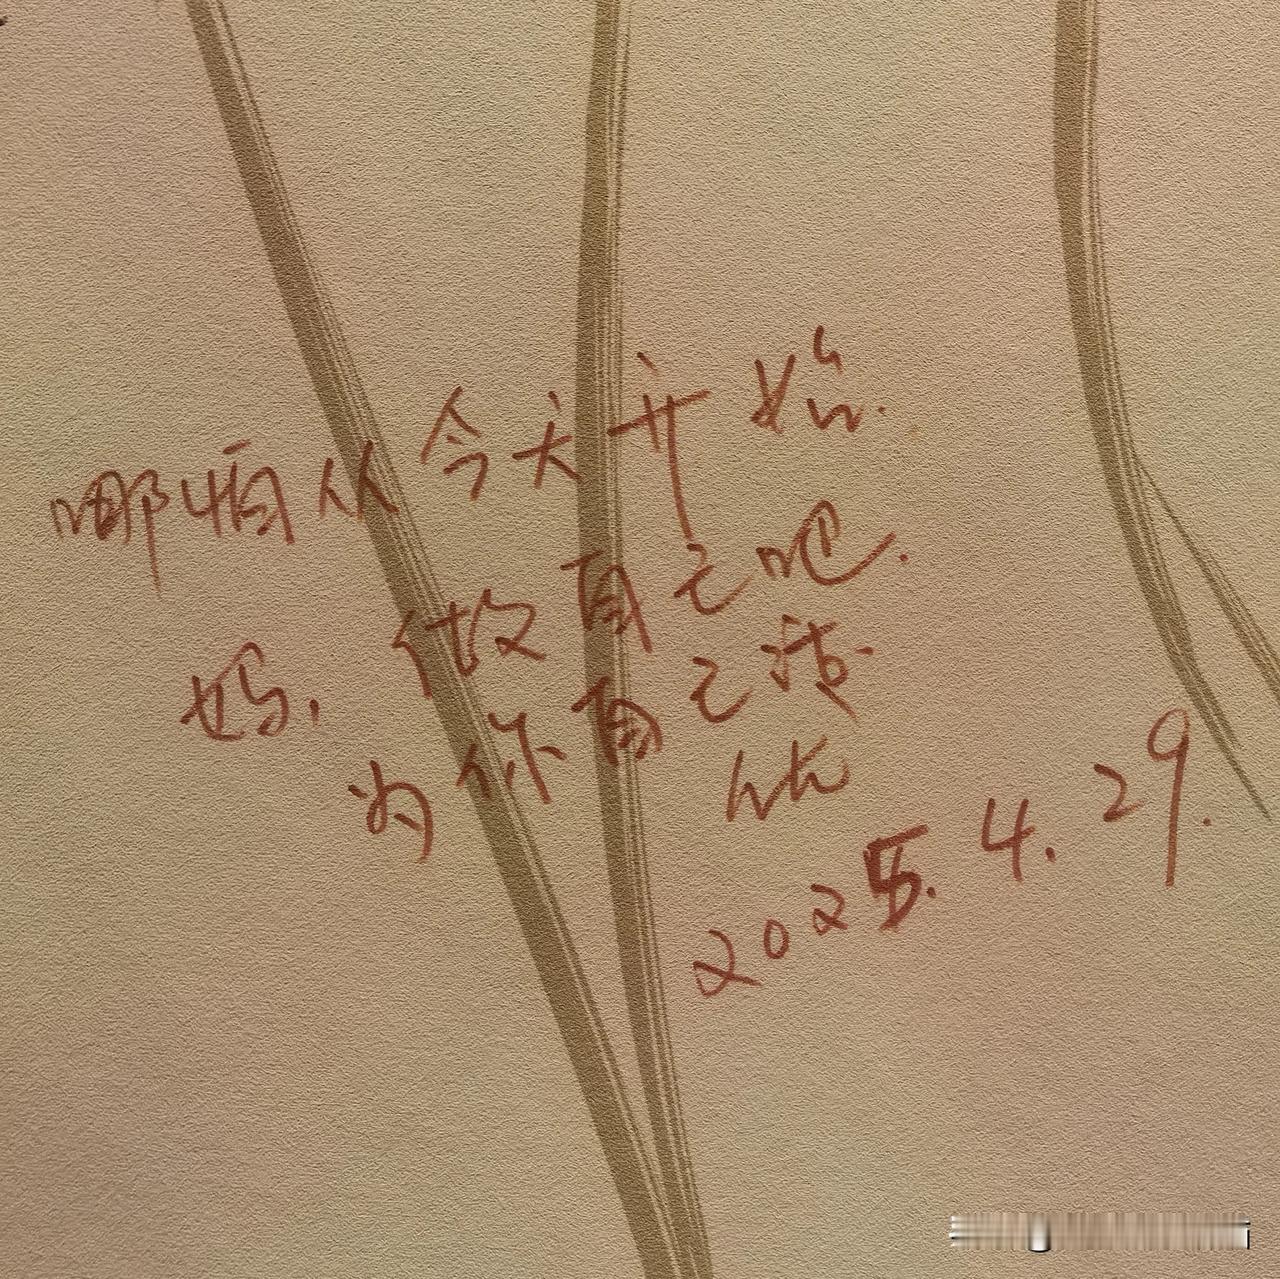 哪怕从今天开始.
妈,做自己吧.
为你自己活
2025.4.29.